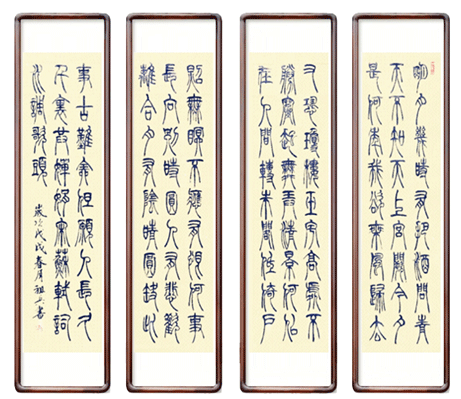 明月幾時有把酒問青
天不知天上宮闕今夕
是何年我欲乘風歸去
又恐瓊樓玉宇高處不
勝寒起舞弄清影何似
在人間轉朱閣低綺戶
照無眠不應有恨何事
長向別時圓人有悲歡
離合月有陰晴圓缺此
事古難全但願人長久
千里共嬋娟宋蘇軾詞
水調歌頭
歲次戊戌春月祖書